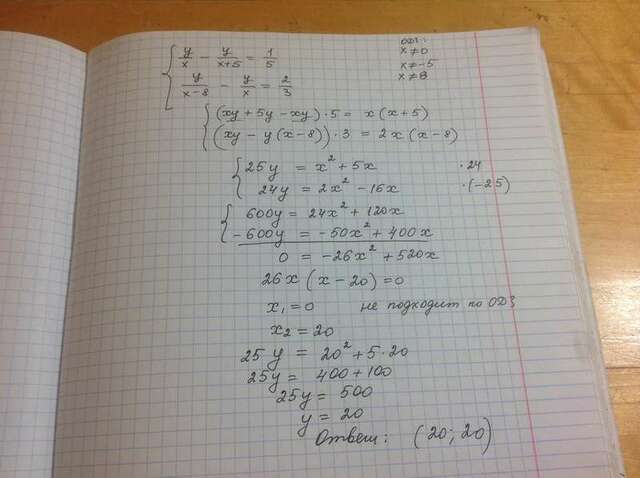 { y/x - y/(x+5) = 1/5
y/(x-8) - y/x = 2/3
ОДЗ:
x ≠ 0
x ≠ -5
x ≠ 8
{ (xy + 5y - xy)·5 = x(x+5)
(xy - y(x-8))·3 = 2x(x-8)
{ 25y = x² + 5x ·24
24y = 2x² - 16x ·(-25)
{ 600y = 24x² + 120x
-600y = -50x² + 400x
0 = -26x² + 520x
26x(x-20) = 0
x₁ = 0 не подходит по ОДЗ
x₂ = 20
25y = 20² + 5·20
25y = 400 + 100
25y = 500
y = 20
Ответ: (20; 20)